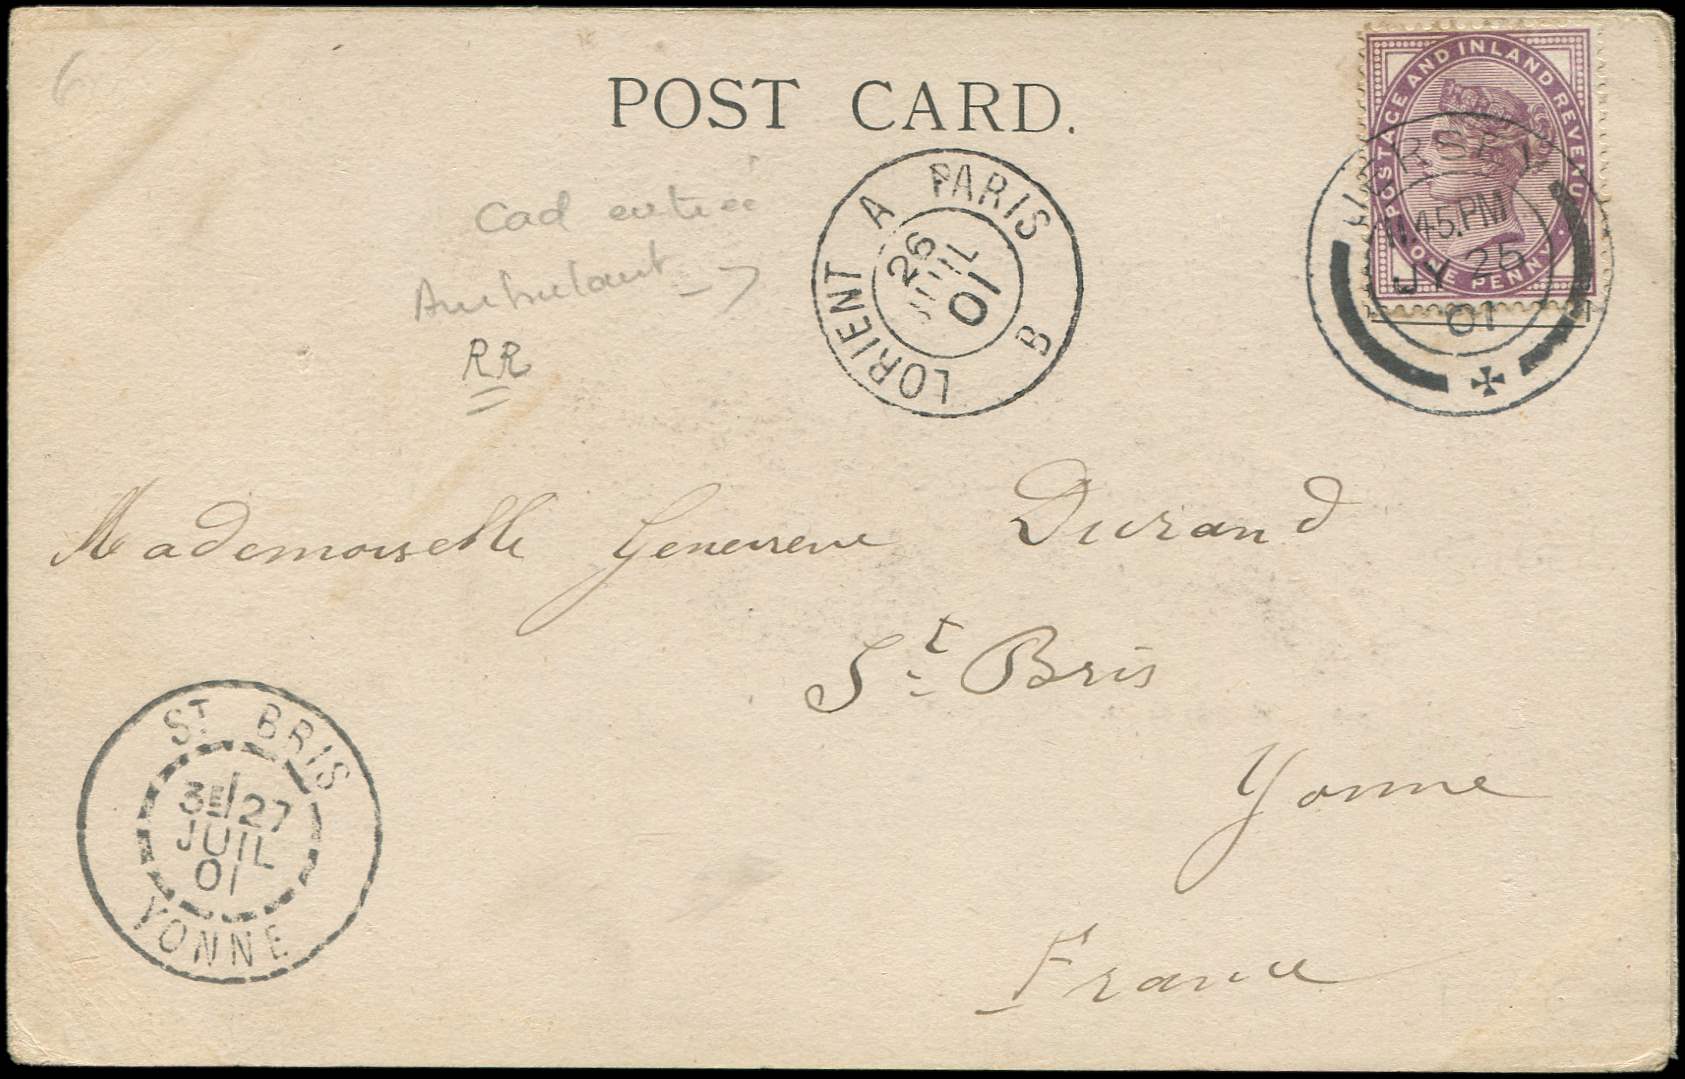 6
POST CARD.
POSTAGE AND INLAND REVENUE
ONE PENNY.
JERSEY
11.45.PM
JY 25
01
Cad entrée
Ambulant ->
RR
LORIENT A PARIS
B
26
JUIL
01
Mademoiselle Genevieve Durand
St. Bris
Yonne
France
ST BRIS
3E/27
JUIL
01
YONNE